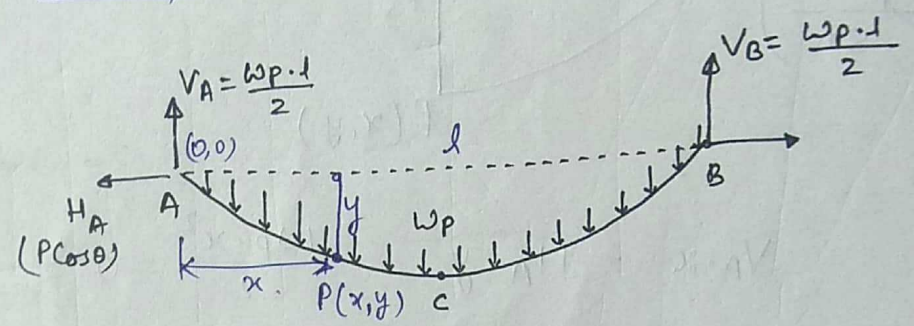 V_A = ω_P · l / 2
V_B = ω_P · l / 2
(0,0)
l
H_A
(Pcosθ)
A
y
ω_P
B
x
P(x,y)
C